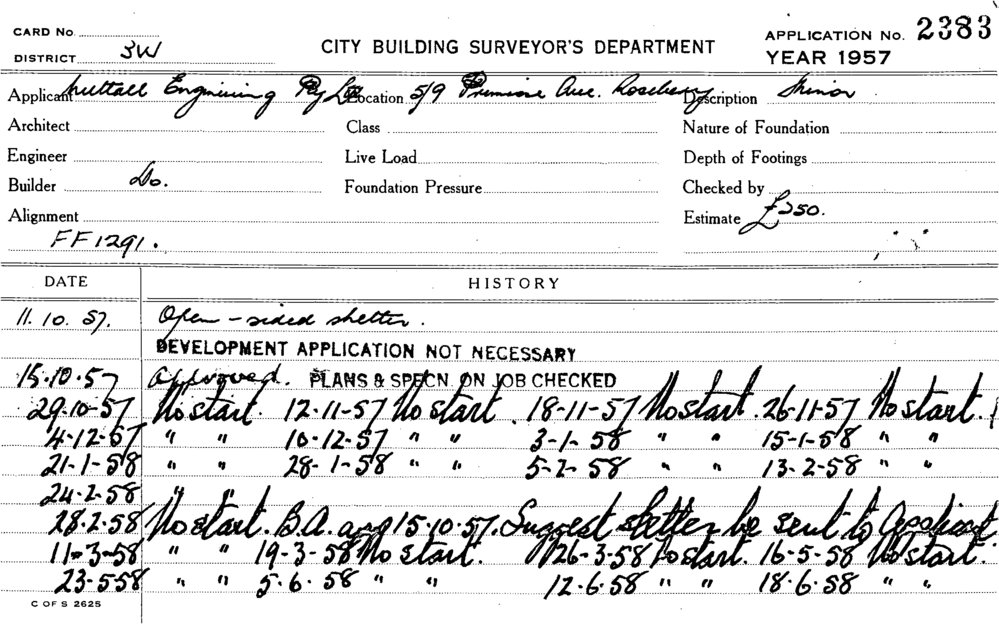 CARD No. APPLICATION No. 2383
DISTRICT 3W CITY BUILDING SURVEYOR'S DEPARTMENT YEAR 1957
Applicant Nuttall Engineering Pty Ltd Location 5/9 Primrose Ave. Rosebery Description Minor
Architect Class Nature of Foundation
Engineer Live Load Depth of Footings
Builder Do. Foundation Pressure Checked by
Alignment Estimate £250.
FF1291.
DATE HISTORY
11.10.57. Open-sided shelter.
DEVELOPMENT APPLICATION NOT NECESSARY
15.10.57 Approved. PLANS & SPECN ON JOB CHECKED
29.10-57 No start. 12.11-57 No start 18-11-57 No start. 26-11-57 No start.
4-12.57 " " 10-12.57 " " 3-1-58 " " 15-1-58 " "
21-1-58 " " 28-1-58 " " 5-2-58 " " 13-2-58 " "
24-2-58 " "
28.2.58 No start. B.A. app 15.10.57. Suggest letter be sent to Applicant.
11-3-58 " " 19-3-58 No start. 26-3-58 No start. 16-5-58 No start.
23-5-58 " " 5.6.58 " " 12.6.58 " " 18.6.58 " "
C OF S 2625